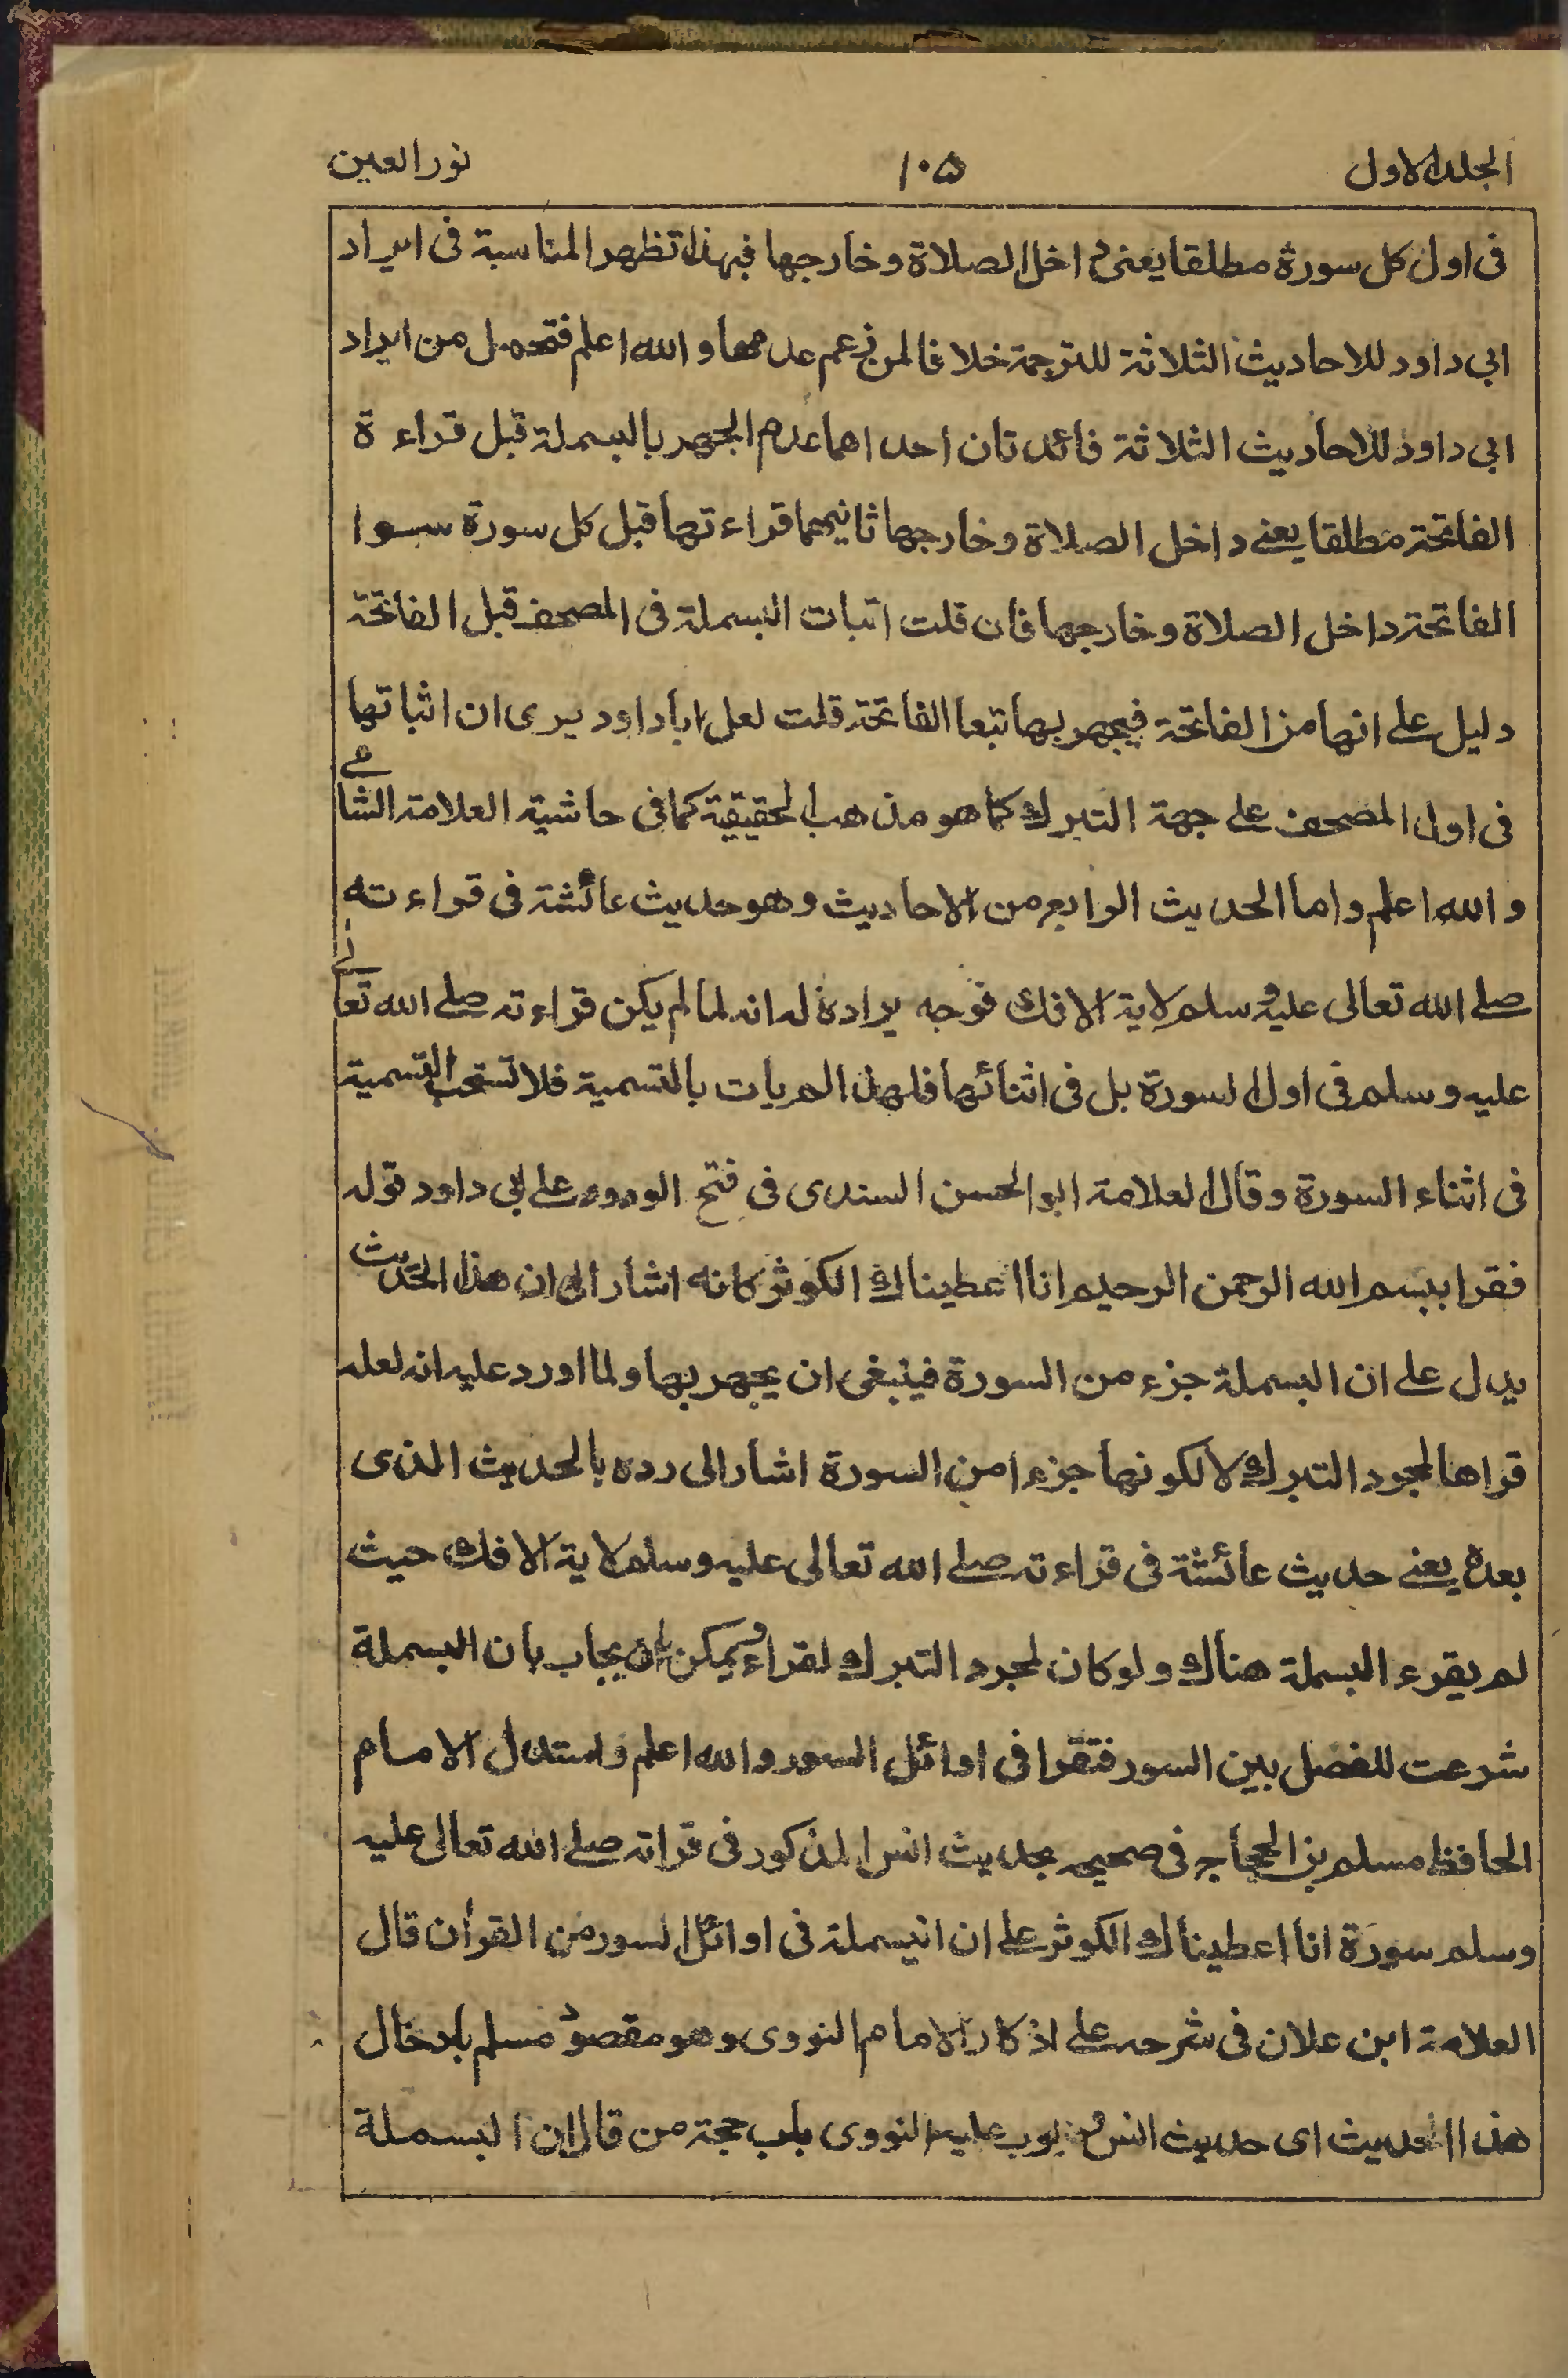 الجلد الاول ١٠۵ نور العين
فى اول كل سورة مطلقا يعنى داخل الصلاة وخارجها فبهذا تظهر المناسبة فى ايراد
ابى داود للاحاديث الثلاثة للترجمة خلافا لمن زعم عدمها والله اعلم فتحصل من ايراد
ابى داود للاحاديث الثلاثة فائدتان احداهما عدم الجهر بالبسملة قبل قراءة
الفاتحة مطلقا يعنے داخل الصلاة وخارجها ثانيهما قراءتها قبل كل سورة سوا
الفاتحة داخل الصلاة وخارجها فان قلت اثبات البسملة فى المصحف قبل الفاتحة
دليل على انها من الفاتحة فيجهر بها تبعا الفاتحة قلت لعل ابا داود يرى ان اثباتها
فى اول المصحف على جهة التبرك كما هو مذهب الحقيقة كما فى حاشية العلامة الشامے
والله اعلم واما الحديث الرابع من الاحاديث وهو حديث عائشة فى قراءته
صلے الله تعالى عليه وسلم لاية الافك فوجه يراده له انه لما لم يكن قراءته صلے الله تعالے
عليه وسلم فى اول السورة بل فى اثنائها فلهذا لم يات بالتسمية فلا تستحب التسمية
فى اثناء السورة وقال العلامة ابو الحسن السندى فى فتح الودود على ابى داود قوله
فقرا ببسم الله الرحمن الرحيم انا اعطيناك الكوثر كانه اشار الى ان هذا الحديث
يدل على ان البسملة جزء من السورة فينبغى ان يجهر بها ولما اورد عليه انه لعله
قراها لمجرد التبرك لا لكونها جزءا من السورة اشار الى رده بالحديث الذى
بعده يعنے حديث عائشة فى قراءته صلے الله تعالى عليه وسلم لاية الافك حيث
لم يقرء البسملة هناك ولو كان لمجرد التبرك لقراء ويمكن ان يجاب بان البسملة
شرعت للفصل بين السور فتقرا فى اوائل السور والله اعلم واستدل الامام
الحافظ مسلم بن الحجاج فى صحيحه بحديث انس المذكور فى قراته صلے الله تعالى عليه
وسلم سورة انا اعطيناك الكوثر على ان البسملة فى اوائل السور من القرأن قال
العلامة ابن علان فى شرحه على اذكار الامام النووى وهو مقصود مسلم بادخال
هذا الحديث اى حديث انس بوب عليه النووى باب حجة من قال ان البسملة